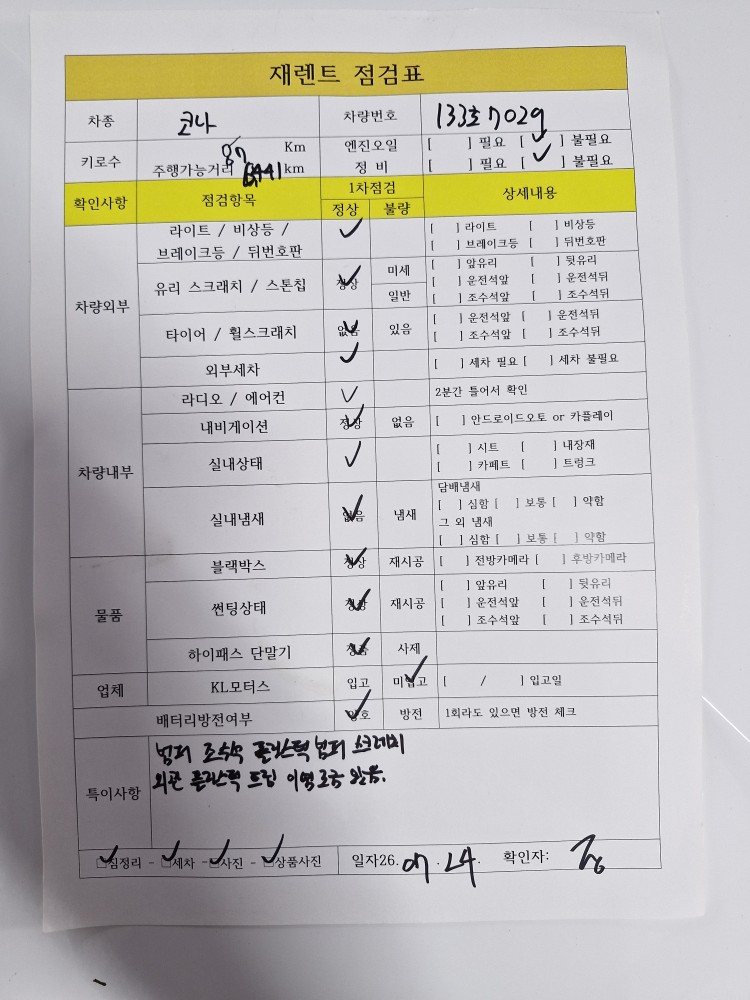 재렌트 점검표
차종 코나 차량번호 133호7029
키로수 Km 엔진오일 [ ] 필요 [ ✓ ] 불필요
주행가능거리 km 정 비 [ ] 필요 [ ✓ ] 불필요
확인사항 점검항목 1차점검 상세내용
정상 불량
차량외부 라이트 / 비상등 / ✓ [ ] 라이트 [ ] 비상등
브레이크등 / 뒤번호판 [ ] 브레이크등 [ ] 뒤번호판
유리 스크래치 / 스톤칩 정상 ✓ 미세 [ ] 앞유리 [ ] 뒷유리
[ ] 운전석앞 [ ] 운전석뒤
일반 [ ] 조수석앞 [ ] 조수석뒤
타이어 / 휠스크래치 없음 ✓ 있음 [ ] 운전석앞 [ ] 운전석뒤
[ ] 조수석앞 [ ] 조수석뒤
외부세차 ✓ [ ] 세차 필요 [ ] 세차 불필요
차량내부 라디오 / 에어컨 ✓ 2분간 틀어서 확인
내비게이션 정상 ✓ 없음 [ ] 안드로이드오토 or 카플레이
실내상태 ✓ [ ] 시트 [ ] 내장재
[ ] 카페트 [ ] 트렁크
실내냄새 없음 ✓ 냄새 담배냄새
[ ] 심함 [ ] 보통 [ ] 약함
그 외 냄새
[ ] 심함 [ ] 보통 [ ] 약함
물품 블랙박스 정상 ✓ 재시공 [ ] 전방카메라 [ ] 후방카메라
썬팅상태 정상 ✓ 재시공 [ ] 앞유리 [ ] 뒷유리
[ ] 운전석앞 [ ] 운전석뒤
[ ] 조수석앞 [ ] 조수석뒤
하이패스 단말기 정품 ✓ 사제
업체 KL모터스 입고 미입고 ✓ [ / ] 입고일
배터리방전여부 양호 ✓ 방전 1회라도 있으면 방전 체크
특이사항 범퍼 조수석 플라스틱 범퍼 스크래치
외관 플라스틱 트림
☑짐정리 - ☑세차 - ☑사진 - ☑상품사진 일자26. 07. 24. 확인자: